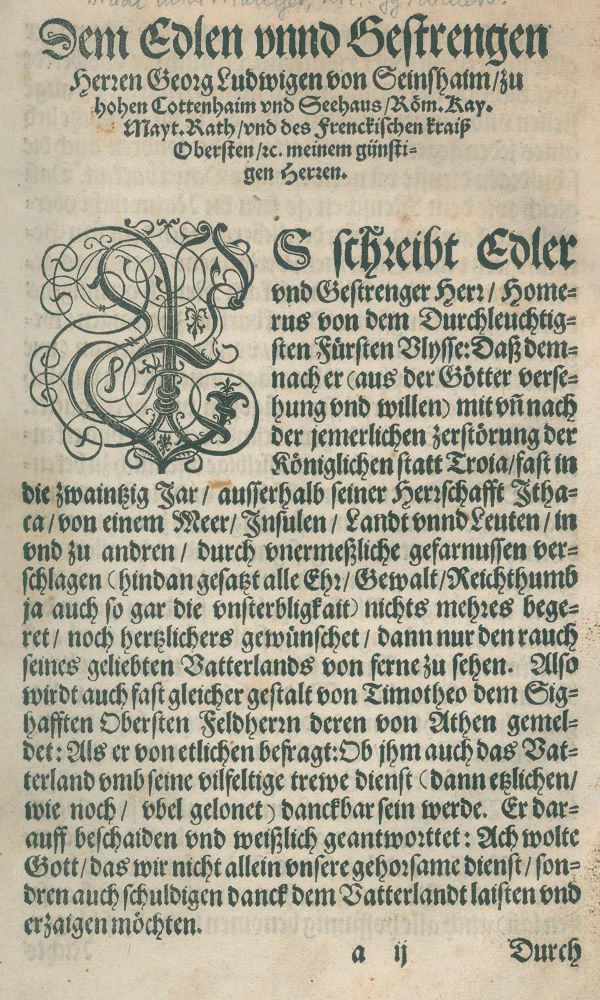 Dem Edlen vnnd Gestrengen
Herren Georg Ludwigen von Seinshaim/zu
hohen Cottenhaim vnd Seehaus/Röm.Kay.
Mayt.Rath/vnd des Frenckischen kraiß
Obersten/ꝛc. meinem günsti-
gen Herren.
ES schreibt Edler
vnd Gestrenger Herr/ Home-
rus von dem Durchleuchtig-
sten Fürsten Vlysse: Daß dem-
nach er (aus der Götter verse-
hung vnd willen) mit vñ nach
der jemerlichen zerstörung der
Königlichen statt Troia/fast in
die zwaintzig Jar/ ausserhalb seiner Herrschafft Jtha-
ca/von einem Meer/ Jnsulen/ Landt vnnd Leuten/ in
vnd zu andren/ durch vnermeßliche gefarnussen ver-
schlagen (hindan gesatzt alle Ehr/ Gewalt/Reichthumb
ja auch so gar die vnsterbligkait) nichts mehres bege-
ret/ noch hertzlichers gewünschet/ dann nur den rauch
seines geliebten Vatterlands von ferne zu sehen. Also
wirdt auch fast gleicher gestalt von Timotheo dem Sig-
hafften Obersten Feldherrn deren von Athen gemel-
det: Als er von etlichen befragt:Ob jhm auch das Vat-
terland vmb seine vilfeltige trewe dienst (dann etzlichen/
wie noch/ vbel gelonet) danckbar sein werde. Er dar-
auff beschaiden vnd weißlich geantworttet: Ach wolte
Gott/das wir nicht allein vnsere gehorsame dienst/ son-
dren auch schuldigen danck dem Vatterlandt laisten vnd
erzaigen möchten.
a ij Durch